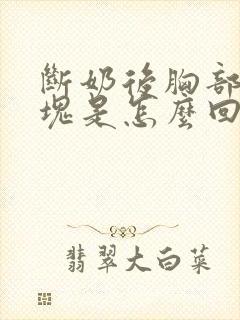 斷奶後胸部
塊是怎麼回
翡翠大白菜